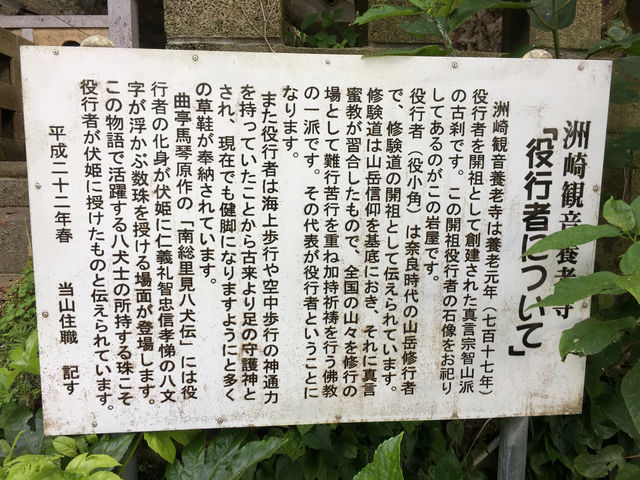 洲崎観音養老寺
「役行者について」
洲崎観音養老寺は養老元年（七百十七年）
役行者を開祖として創建された真言宗智山派
の古刹です。この開祖役行者の石像をお祀り
してあるのがこの岩屋です。
役行者（役小角）は奈良時代の山岳修行者
で、修験道の開祖として伝えられています。
修験道は山岳信仰を基底におき、それに真言
蜜教が習合したもので、全国の山々を修行の
場として難行苦行を重ね加持祈祷を行う佛教
の一派です。その代表が役行者ということに
なります。
また役行者は海上歩行や空中歩行の神通力
を持っていたことから古来より足の守護神と
され、現在でも健脚になりますようにと多く
の草鞋が奉納されています。
曲亭馬琴原作の「南総里見八犬伝」には役
行者の化身が伏姫に仁義礼智忠信孝悌の八文
字が浮かぶ数珠を授ける場面が登場します。
この物語で活躍する八犬士の所持する珠こそ
役行者が伏姫に授けたものと伝えられています。
平成二十二年春　当山住職　記す